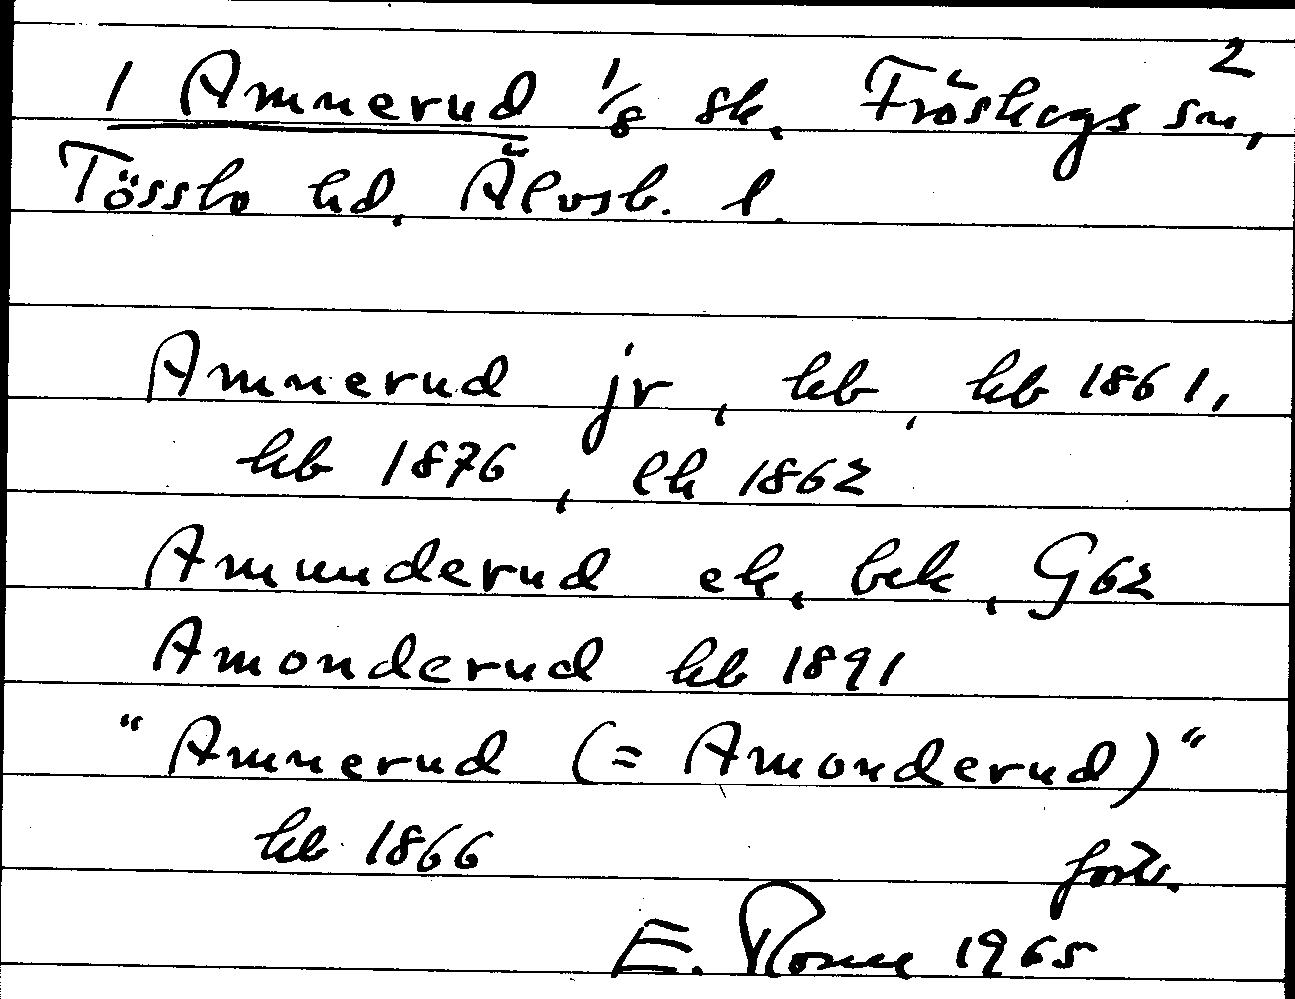 2
1 Amnerud 1/8 sk. Fröskogs sn,
Tössbo hd, Älvsb. l.
Amnerud jr, kb, kb 1861,
kb 1876, lk 1862
Amunderud ek, bek, G62
Amonderud kb 1891
"Amnerud (= Amonderud)"
kb 1866 forts.
E. 1965